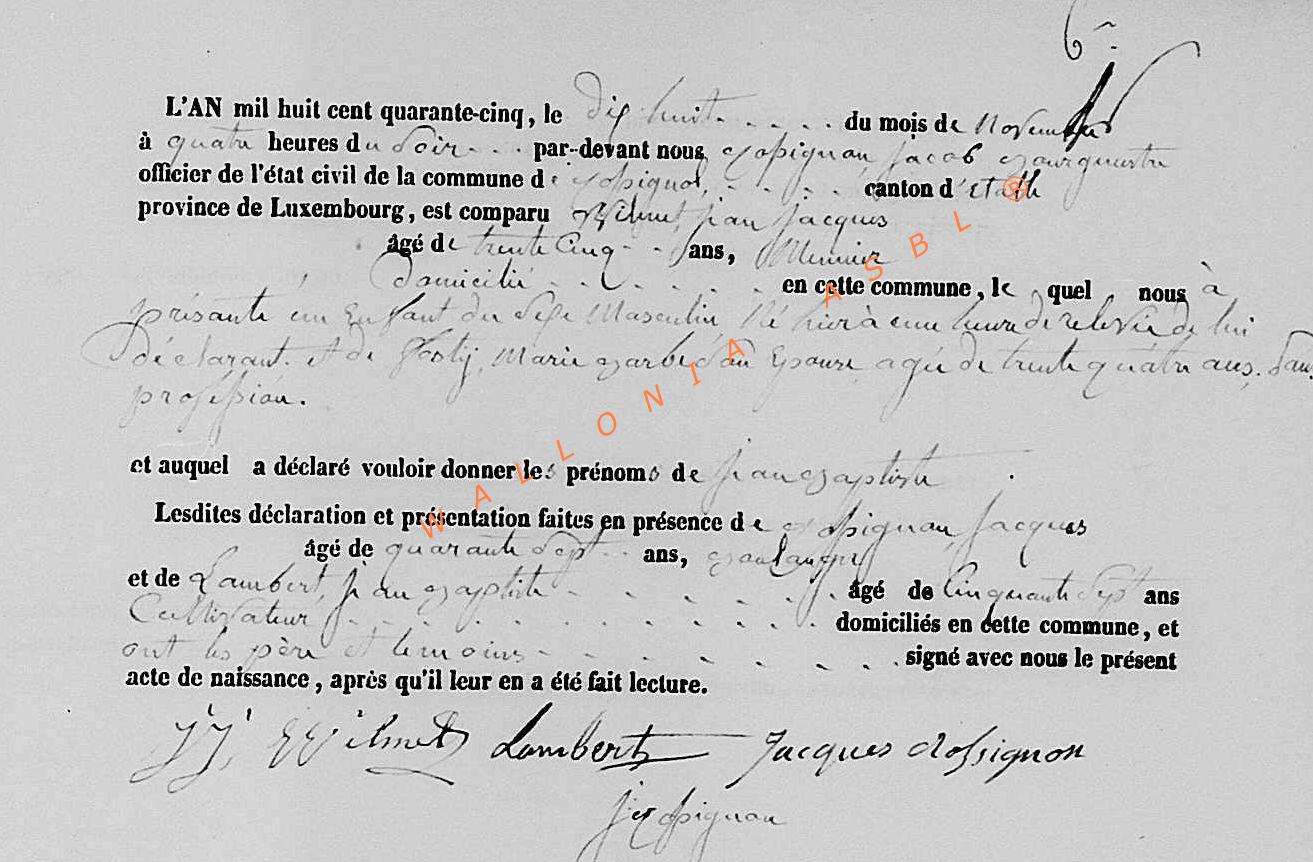 6
L'AN mil huit cent quarante-cinq, le Dix huit . . . . du mois de Novembre
à quatre heures du Soir . . . par-devant nous, Rossignon, Jacob Bourguestre
officier de l'état civil de la commune de Rossignol, . . . . canton d'Etalle
province de Luxembourg, est comparu Wilmet, jean jacques
âgé de trente Cinq - . ans, Meunier
Domicilié . . . . . . en cette commune, le quel nous à
présenté un Enfant du Sexe Masculin, Né hier à une heure de relevée de lui
déclarant. et de Marie Barbe Son Epouse agée de trente quatre ans, Sans
profession.
et auquel a déclaré vouloir donner les prénoms de jean Baptiste .
Lesdites déclaration et présentation faites en présence de Rossignon, Jacques
âgé de quarante Sept .. ans, Boulanger
et de Lambert, jean Baptiste - . . . . . . âgé de Cinquante Sept ans
Cultivateur . . . . . . . . . . . domiciliés en cette commune, et
ont les père et temoins - . . . . . . signé avec nous le présent
acte de naissance, après qu'il leur en a été fait lecture.
J J, Wilmet Lambert Jacques Rossignon
J Rossignon
WALLONIA ASBL ®